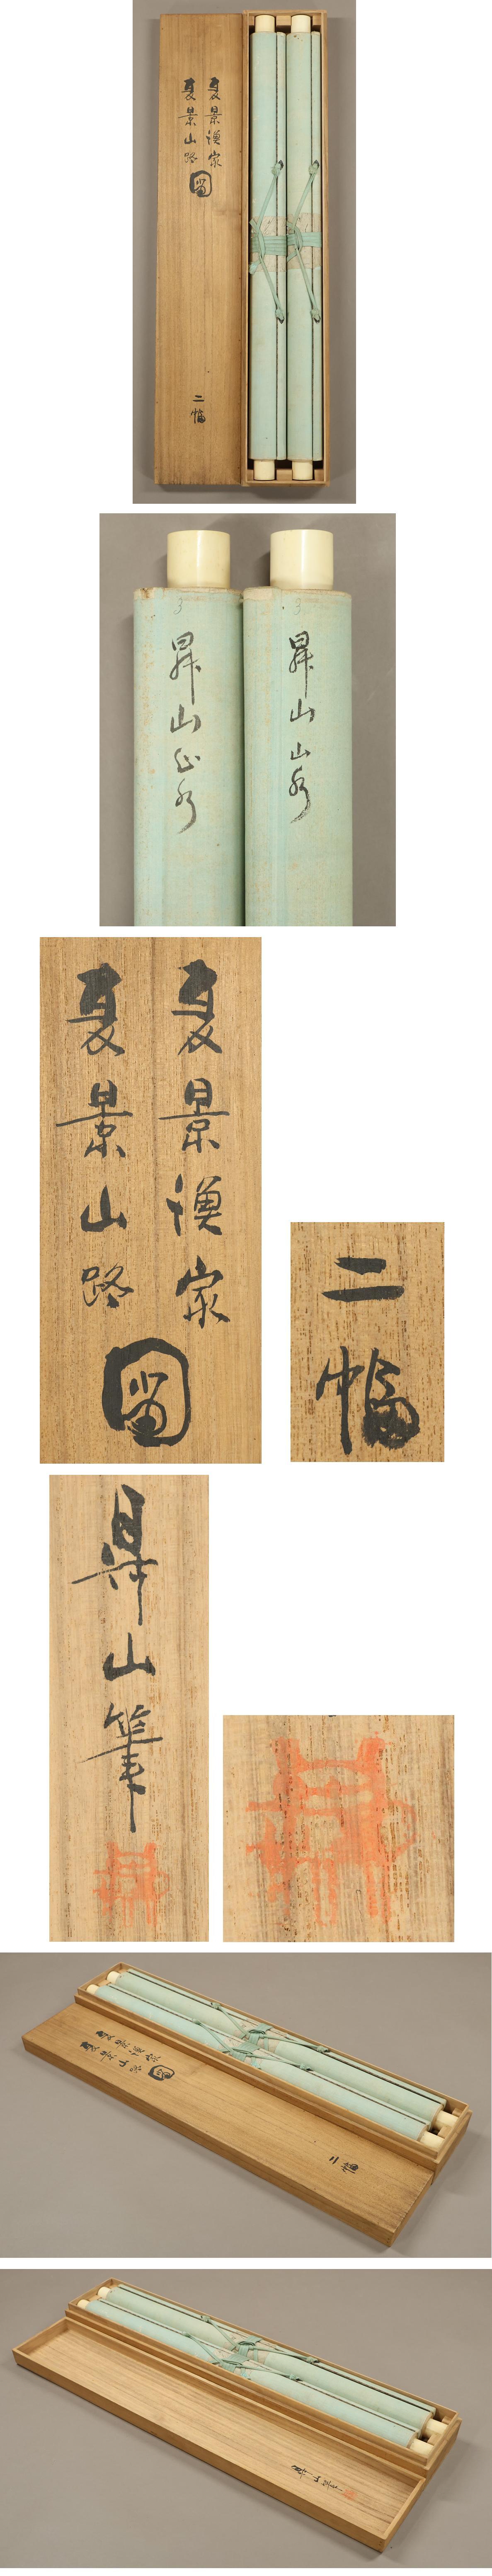 夏景漁家
夏景山路
圖
二幅
3
昇山山水
3
昇山山水
夏景漁家
夏景山路
圖
二幅
昇山筆
夏景漁家
夏景山路
圖
二幅
昇山筆